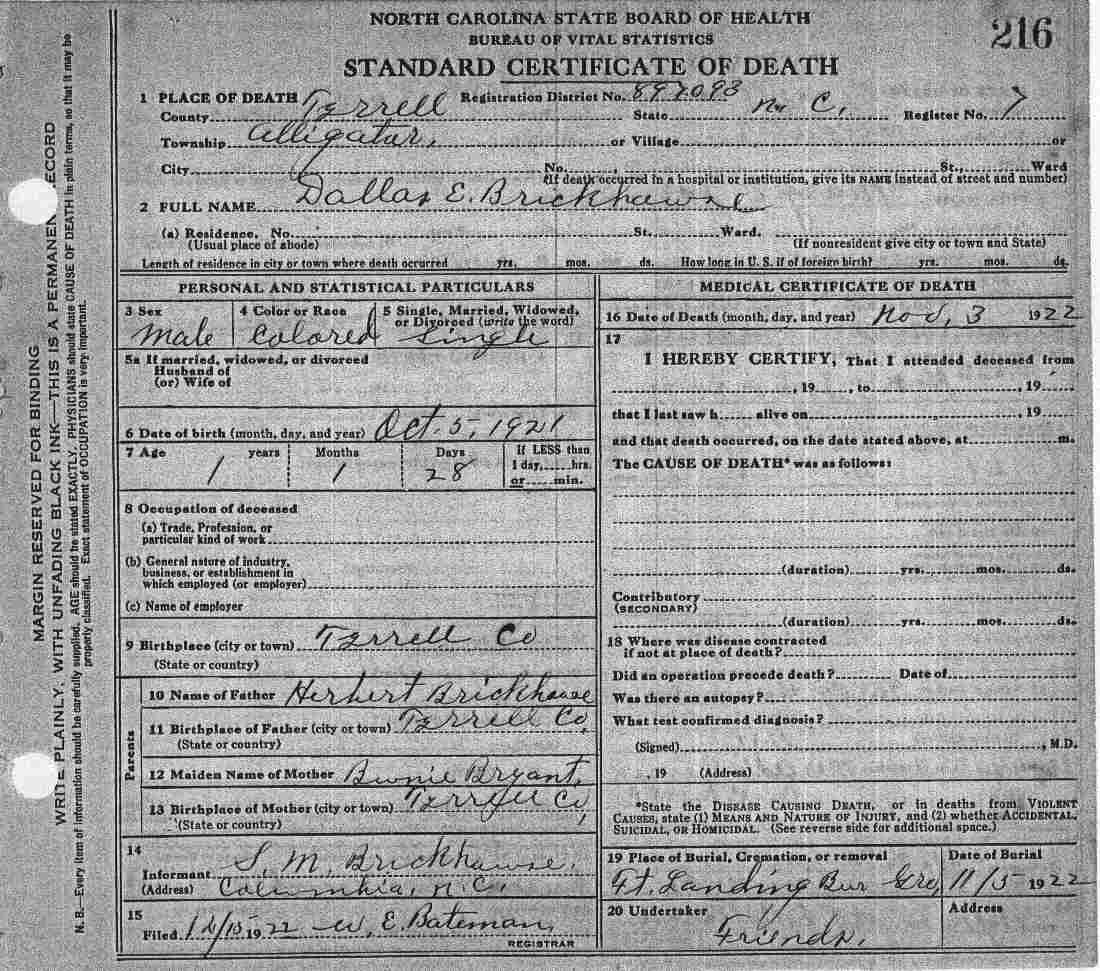 NORTH CAROLINA STATE BOARD OF HEALTH
BUREAU OF VITAL STATISTICS
216
STANDARD CERTIFICATE OF DEATH
1 PLACE OF DEATH Registration District No. 897093
County Tyrrell State N. C. Register No. 7
Township Alligator, or Village or
City No. St., Ward
(If death occurred in a hospital or institution, give its NAME instead of street and number)
2 FULL NAME Dallas E. Brickhawse
(a) Residence. No. St. Ward.
(Usual place of abode) (If nonresident give city or town and State)
Length of residence in city or town where death occurred yrs. mos. ds. How long in U. S. if of foreign birth? yrs. mos. ds.
PERSONAL AND STATISTICAL PARTICULARS
3 Sex 4 Color or Race 5 Single, Married, Widowed, or Divorced (write the word)
Male Colored Single
5a If married, widowed, or divorced
Husband of
(or) Wife of
6 Date of birth (month, day, and year) Oct. 5, 1921
7 Age years Months Days If LESS than
1 day, hrs.
1 1 28 or min.
8 Occupation of deceased
(a) Trade, Profession, or
particular kind of work
(b) General nature of industry,
business, or establishment in
which employed (or employer)
(c) Name of employer
9 Birthplace (city or town) Tyrrell Co
(State or country)
Parents
10 Name of Father Herbert Brickhawse
11 Birthplace of Father (city or town) Tyrrell Co,
(State or country)
12 Maiden Name of Mother Bryant,
13 Birthplace of Mother (city or town) Tyrrell Co,
(State or country)
14
Informant S. M. Brickhawse.
(Address) Columbia, N.C.
15
Filed 12/15 1922 W. E. Bateman,
REGISTRAR
MEDICAL CERTIFICATE OF DEATH
16 Date of Death (month, day, and year) Nov, 3 1922
17
I HEREBY CERTIFY, That I attended deceased from
, 19 , to , 19
that I last saw h alive on , 19
and that death occurred, on the date stated above, at m.
The CAUSE OF DEATH* was as follows:
(duration) yrs. mos. ds.
Contributory
(SECONDARY)
(duration) yrs. mos. ds.
18 Where was disease contracted
if not at place of death?
Did an operation precede death? Date of
Was there an autopsy?
What test confirmed diagnosis?
(Signed) , M.D.
, 19 (Address)
*State the DISEASE CAUSING DEATH, or in deaths from VIOLENT
CAUSES, state (1) MEANS AND NATURE OF INJURY, and (2) whether ACCIDENTAL,
SUICIDAL, OR HOMICIDAL. (See reverse side for additional space.)
19 Place of Burial, Cremation, or removal Date of Burial
Ft. Landing Bur Gro, 11/5 1922
20 Undertaker Address
Friends,
MARGIN RESERVED FOR BINDING
WRITE PLAINLY, WITH UNFADING BLACK INK—THIS IS A PERMANENT RECORD
N. B.—Every item of information should be carefully supplied. AGE should be stated EXACTLY. PHYSICIANS should state CAUSE OF DEATH in plain terms, so that it may be
properly classified. Exact statement of OCCUPATION is very important.